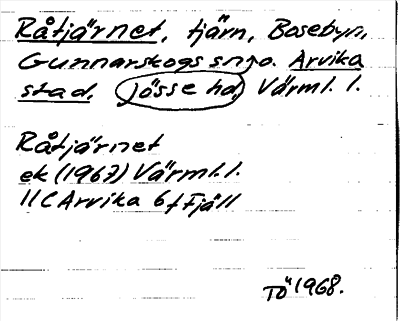 Råtjärnet, tjärn, Bosebyn,
Gunnarskogs sngo. Arvika
stad, Jösse hd, Värml. l.
Råtjärnet
ek (1967) Värml. l.
11C Arvika 6f Fjäll
Tö 1968.